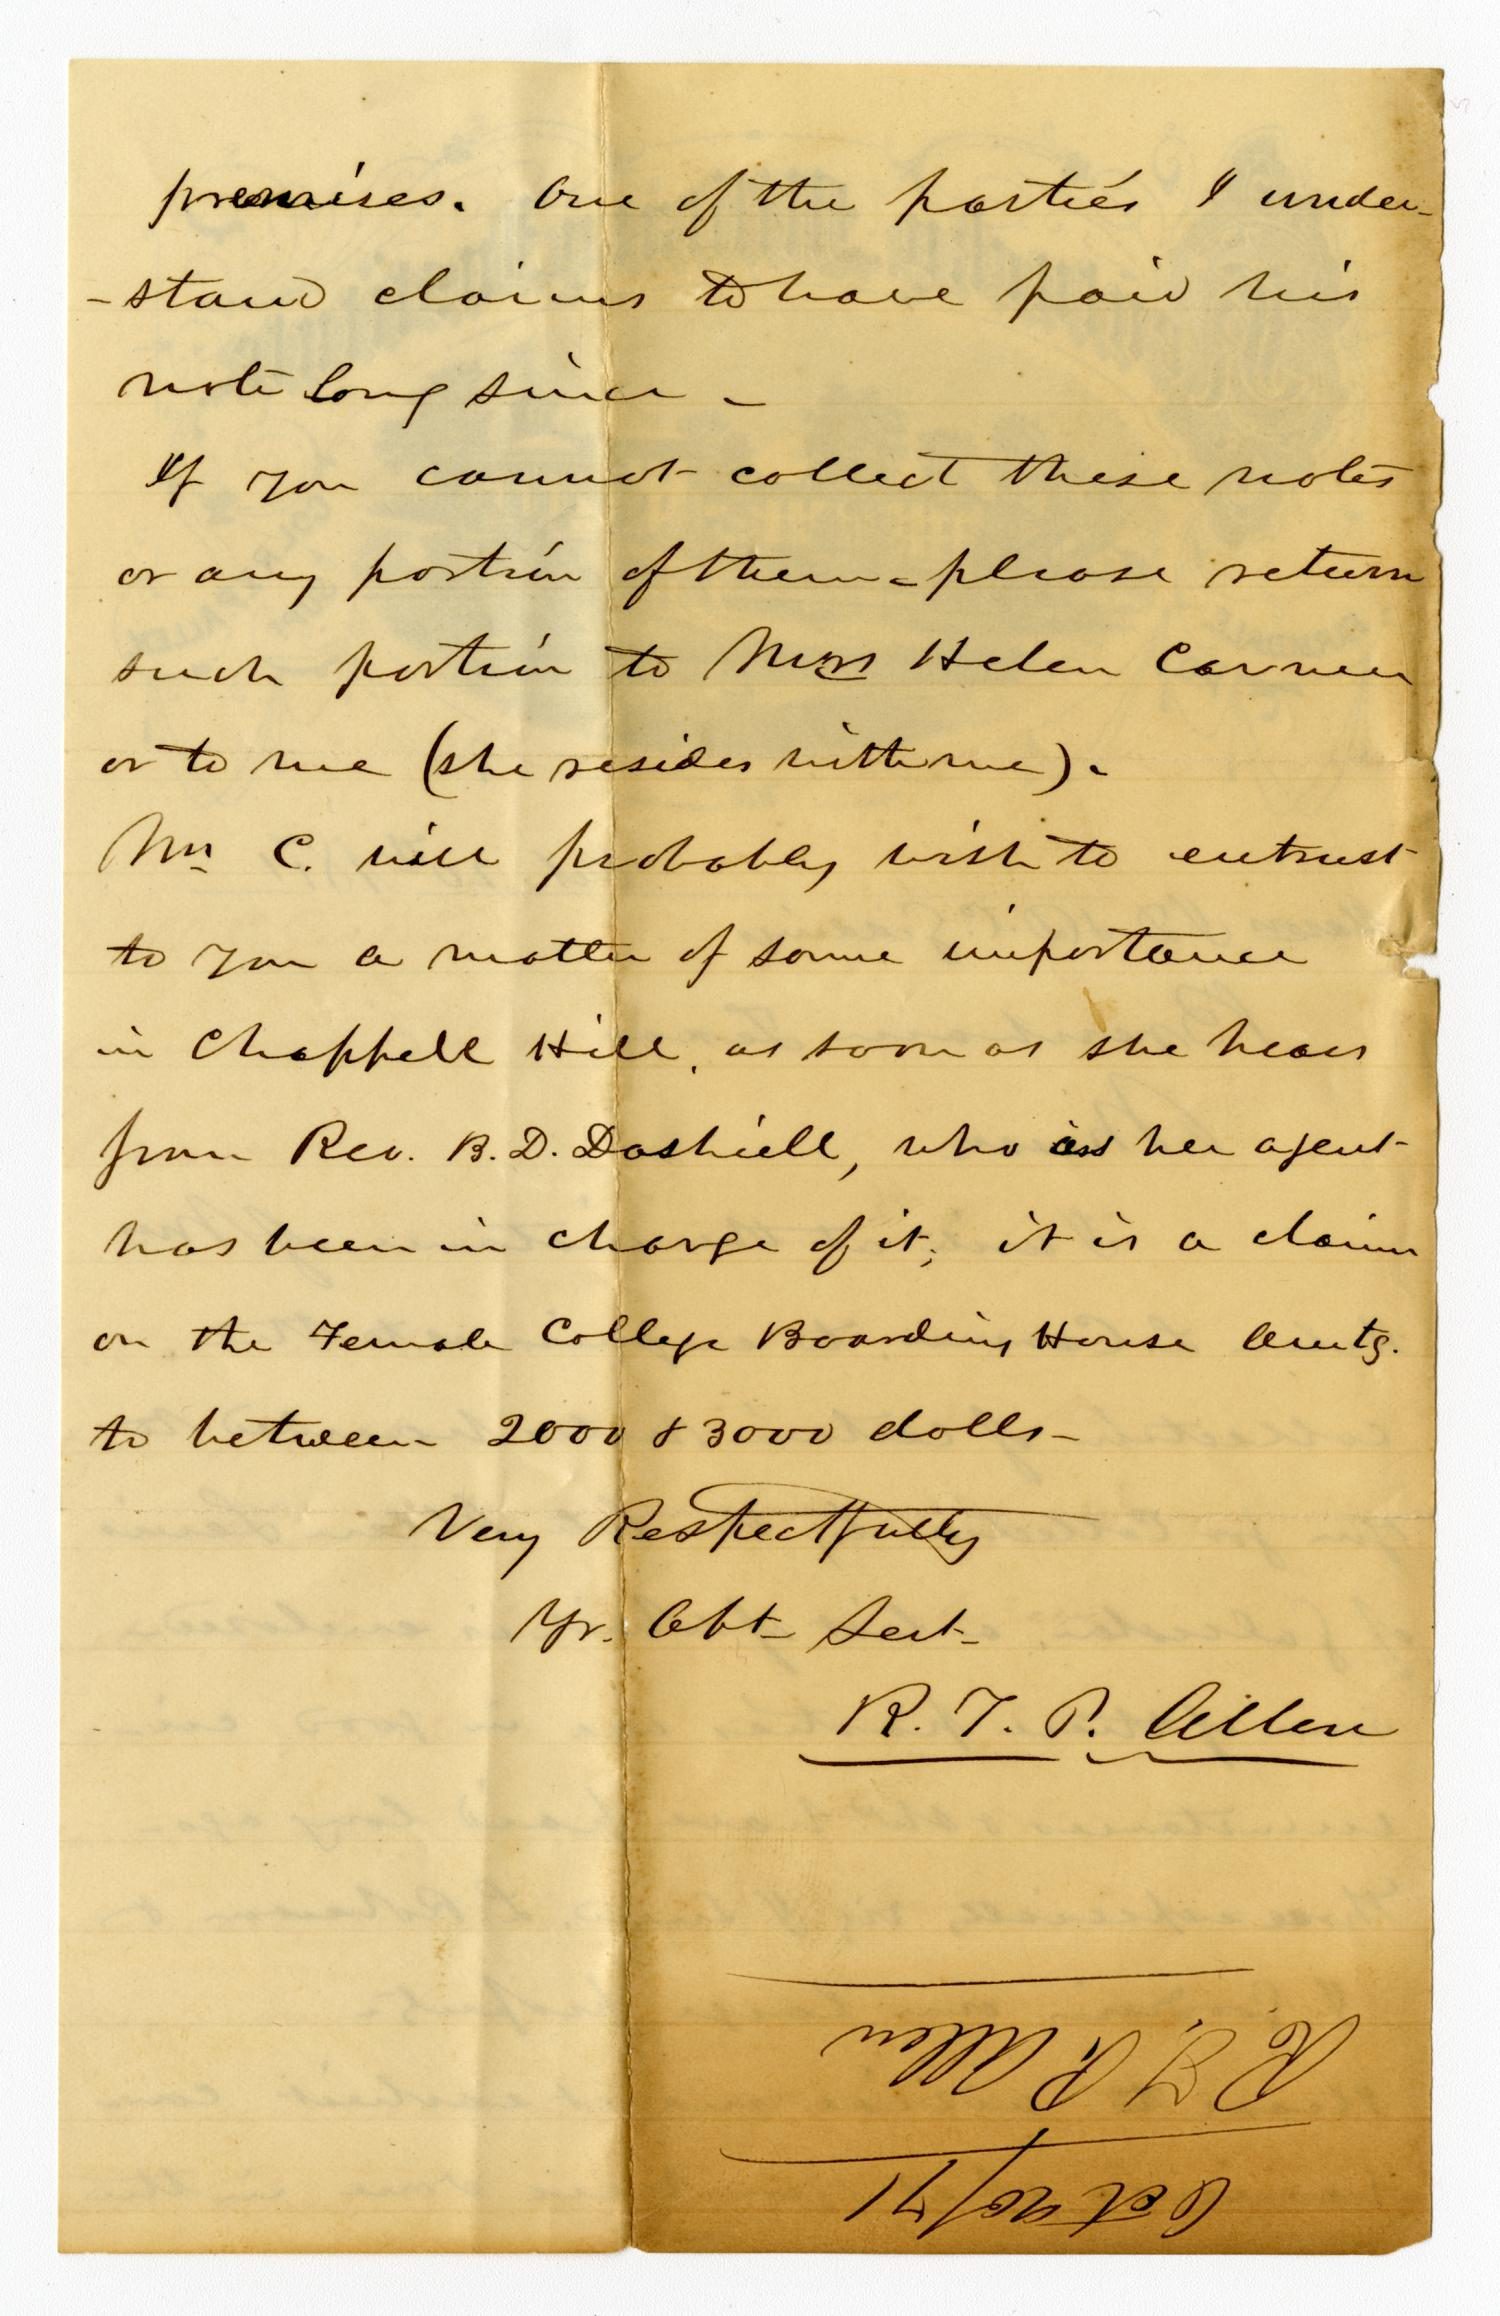 premises. One of the parties I under-
-stand claims to have paid his
note long since -
If you cannot collect these notes
or any portion of them - please return
such portion to Mrs Helen Carmer
or to me (she resides with me).
Mrs C. will probably wish to entrust
to you a matter of some importance
in Chappell Hill, as soon as she hears
from Rev. B. D. Dashiell, who as her agent
has been in charge of it; it is a claim
on the Female College Boarding House Amtg.
to between 2000 & 3000 dolls -
Very Respectfully
Yr. Obt Sert
R. T. P. Allen
R. T. P. Allen
Oct 20/71